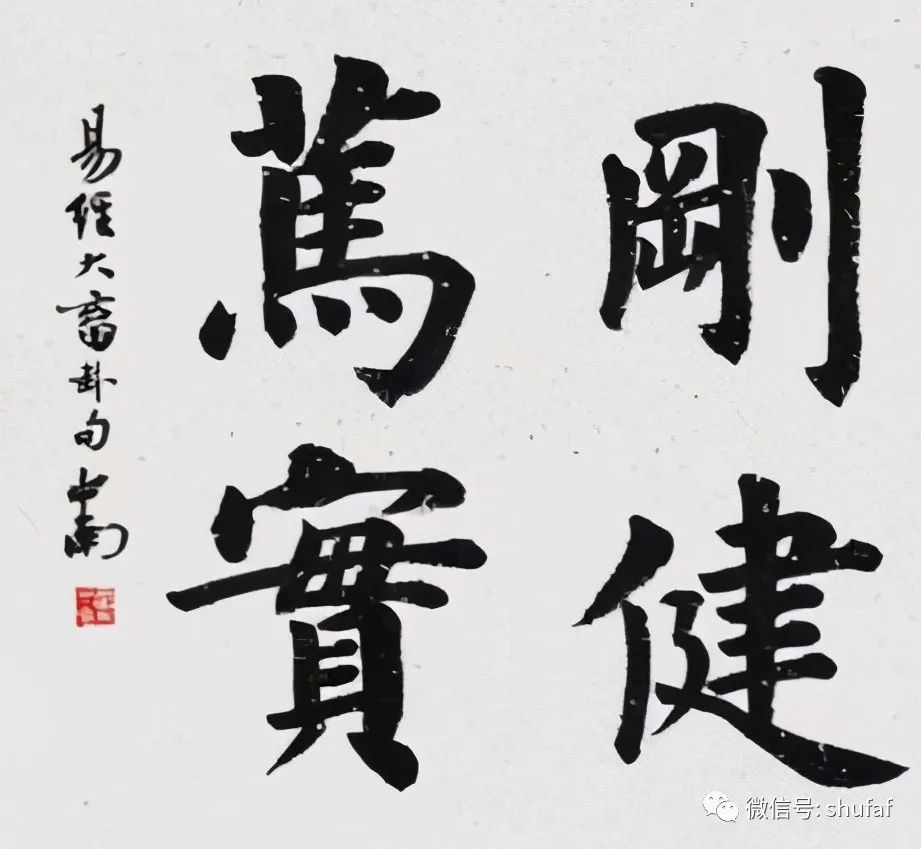 剛健
篤實
易經大畜卦句中南
微信号: shufaf